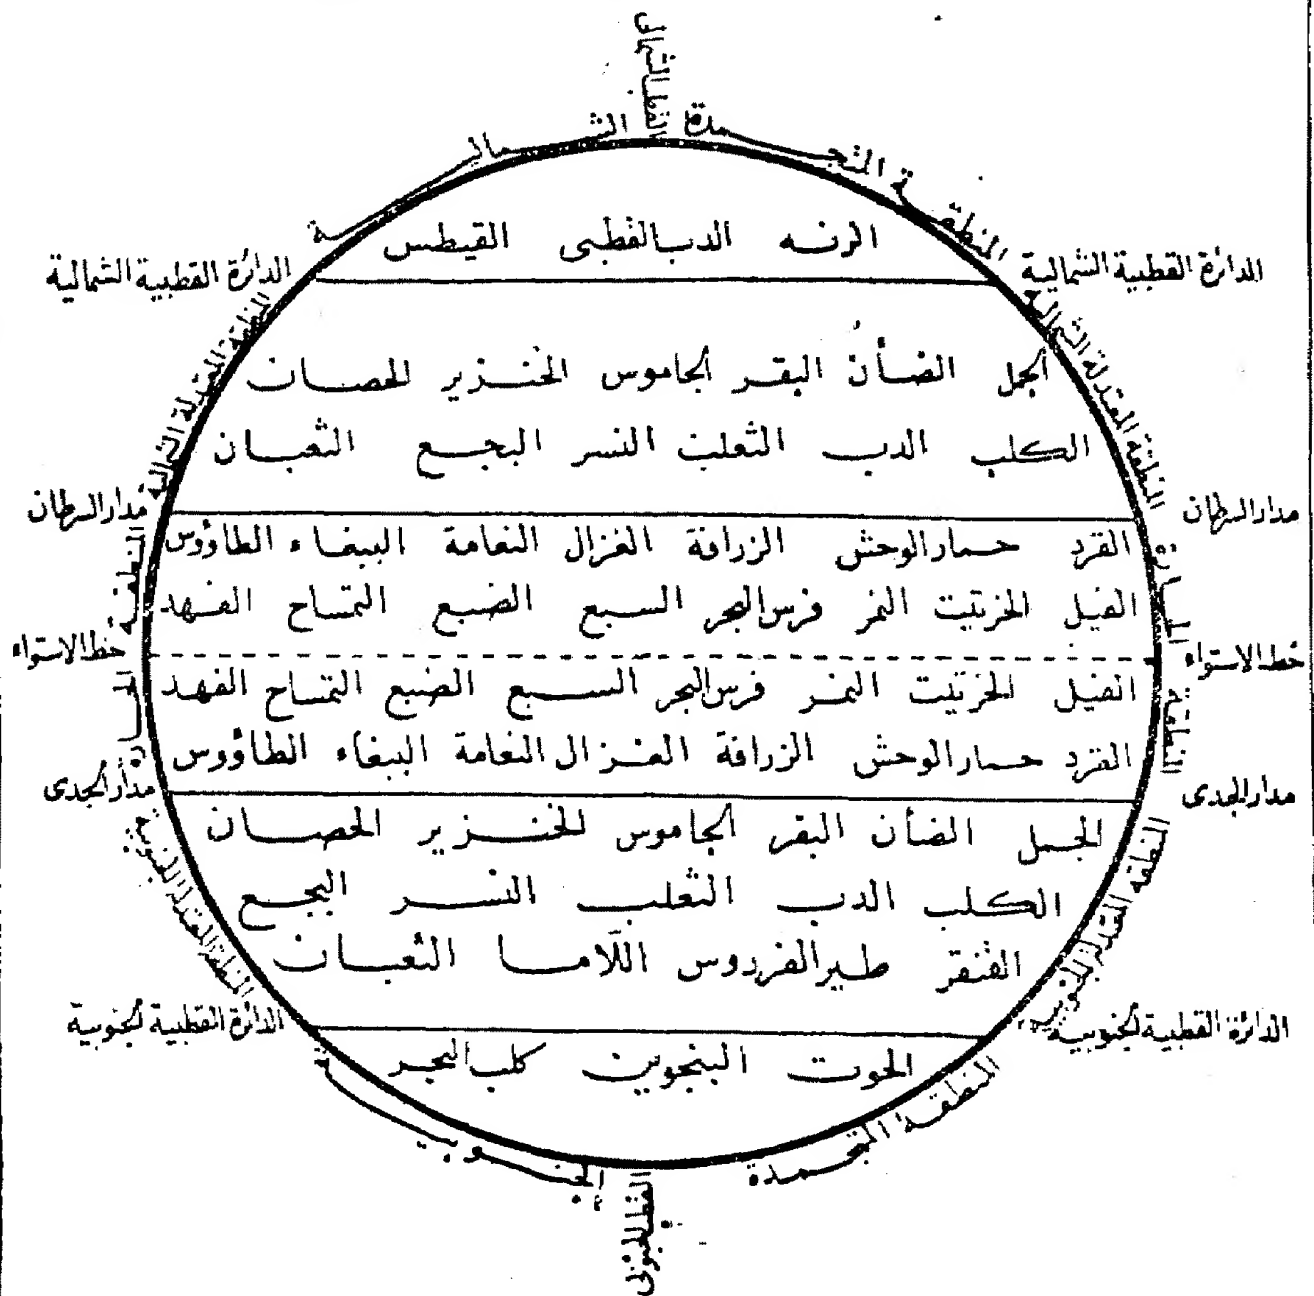 القطب الشمالى
المنطقة المتجمدة الشمالية
الرنه الدب القطبى القيطس
الدائرة القطبية الشمالية
الدائرة القطبية الشمالية
المنطقة المعتدلة الشمالية
المنطقة المعتدلة الشمالية
الجمل الضأن البقر الجاموس الخنزير الحصان
الكلب الدب الثعلب النسر البجع الثعبان
مدار السرطان
مدار السرطان
القرد حمار الوحش الزرافة الغزال النعامة الببغاء الطاؤوس
الفيل الخرتيت النمر فرس البحر السبع الضبع التمساح الفهد
المنطقة الحارة
المنطقة الحارة
خط الاستواء
خط الاستواء
الفيل الخرتيت النمر فرس البحر السبع الضبع التمساح الفهد
القرد حمار الوحش الزرافة الغزال النعامة الببغاء الطاؤوس
مدار الجدى
مدار الجدى
الجمل الضأن البقر الجاموس الخنزير الحصان
الكلب الدب الثعلب النسر البجع
القنقر طير الفردوس اللاما الثعبان
المنطقه المعتدلة الجنوبية
المنطقة المعتدلة الجنوبية
الدائرة القطبية الجنوبية
الدائرة القطبية الجنوبية
الحوت البنجوين كلب البحر
المنطقة المتجمدة الجنوبية
القطب الجنوبى